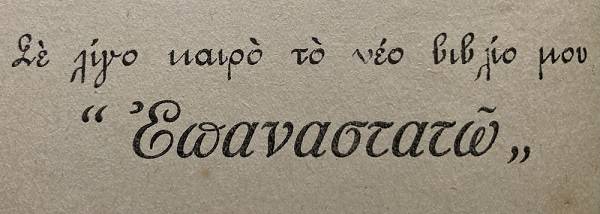 Σὲ λίγο καιρὸ τὸ νέο βιβλίο μου
“ Ἐπαναστατῶ „